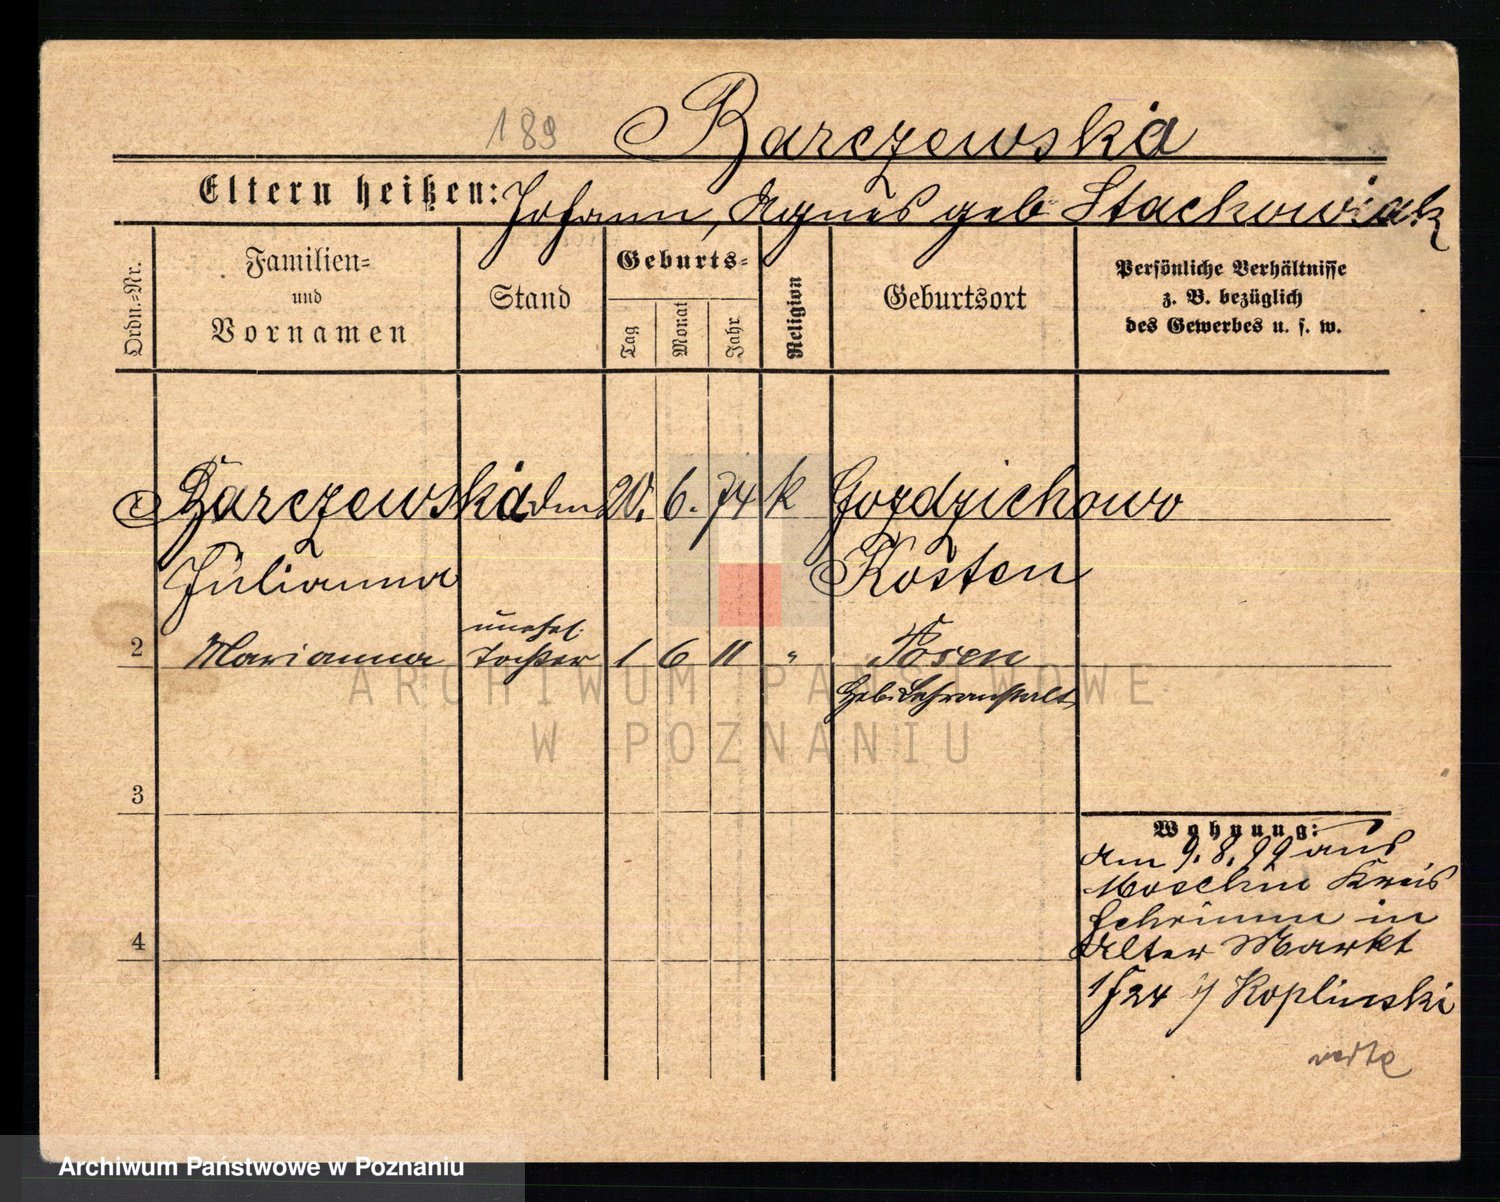 189 Barczewska
Eltern heißen: Johann, Agnes geb Stachowiak
Ordn.-Nr.
Familien-
und
Vornamen
Stand
Geburts-
Tag
Monat
Jahr
Religion
Geburtsort
Persönliche Verhältnisse
z. B. bezüglich
des Gewerbes u. s. w.
Barczewska 20. 6. 74 k Gozdzichowo
Julianna Kosten
unehel.
2 Marianna Tochter 1 6 11 " Posen
Geb. Lehranstalt
3
Wohnung:
am 9.8.99 aus
Moschin Kreis
Schrimm in
4 Alter Markt
24 Koplinski
verte
ARCHIWUM PAŃSTWOWE
W POZNANIU
Archiwum Państwowe w Poznaniu